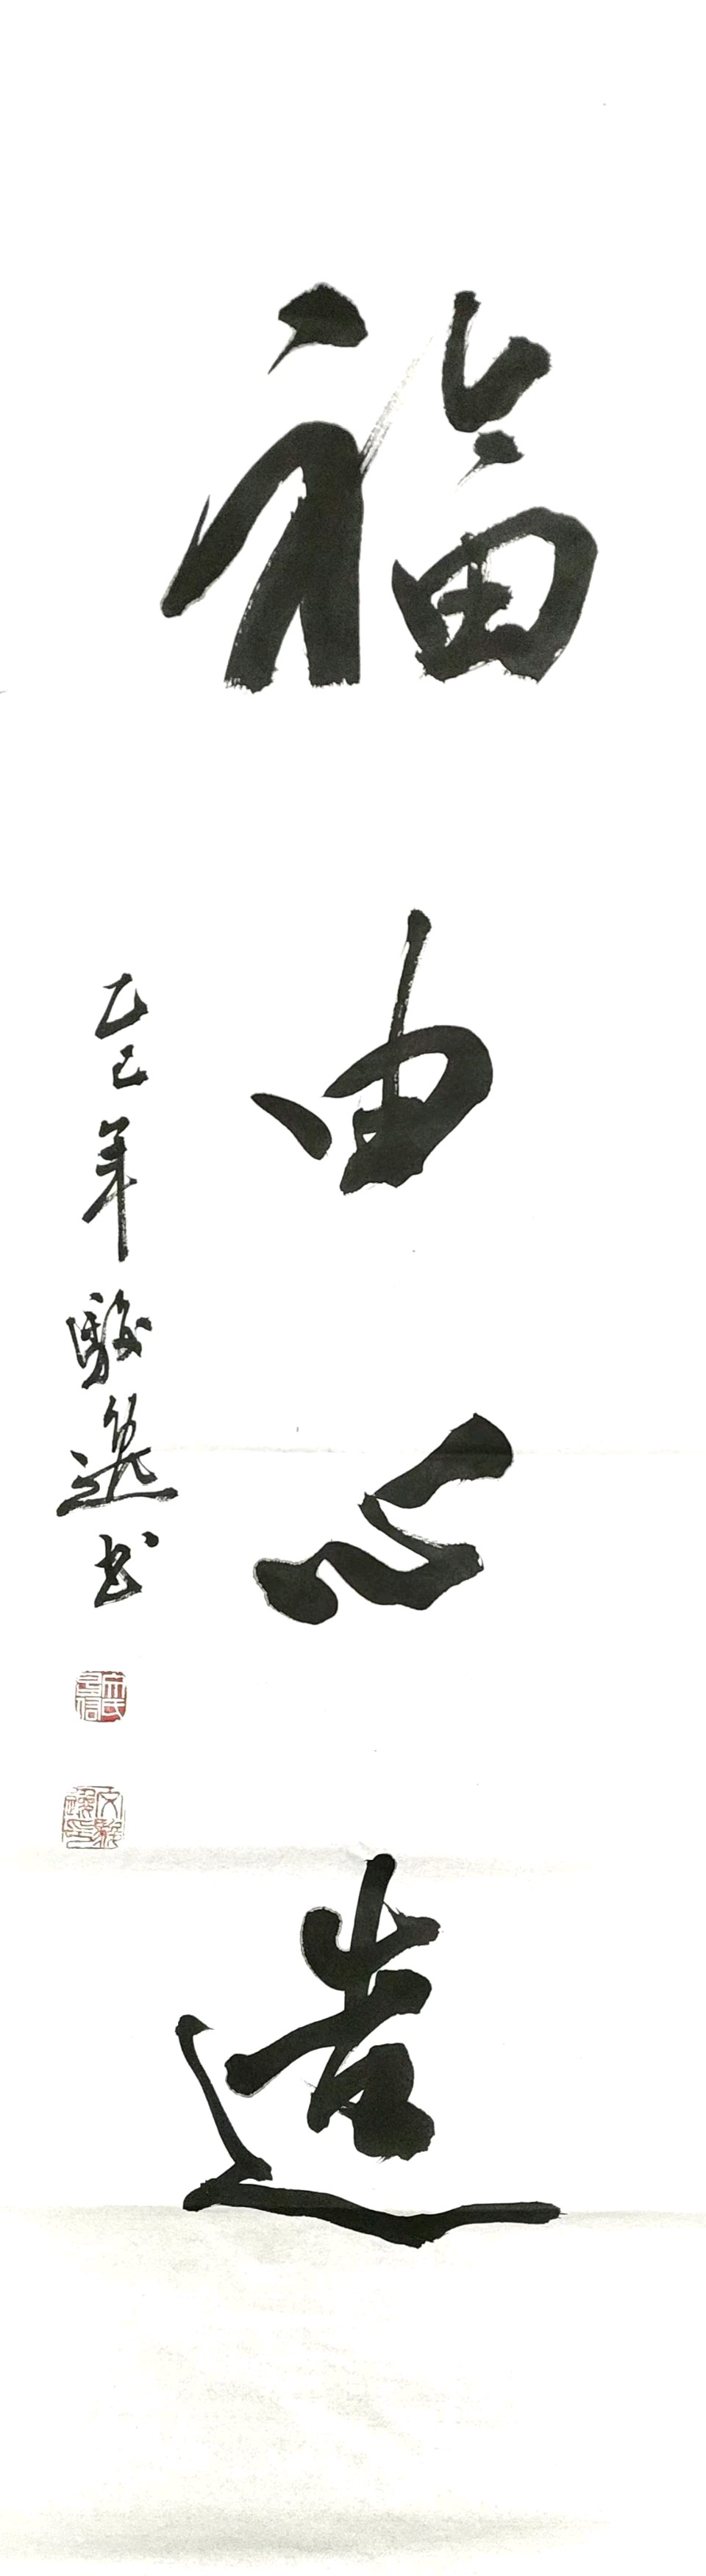 福由心造
乙巳年駿逸书